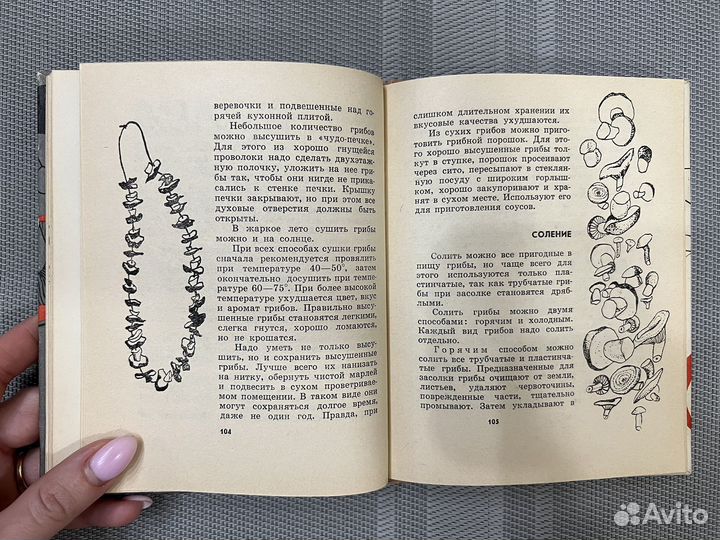 веревочки и подвешенные над го-
рячей кухонной плитой.
Небольшое количество грибов
можно высушить в «чудо-печке».
Для этого из хорошо гнущейся
проволоки надо сделать двухэтаж-
ную полочку, уложить на нее гри-
бы так, чтобы они нигде не прика-
сались к стенке печки. Крышку
печки закрывают, но при этом все
духовые отверстия должны быть
открыты.
В жаркое лето сушить грибы
можно и на солнце.
При всех способах сушки грибы
сначала рекомендуется провялить
при температуре 40—50°, затем
окончательно досушить при тем-
пературе 60—75°. При более высокой
температуре ухудшается цвет, вкус
и аромат грибов. Правильно высу-
шенные грибы становятся легкими,
слегка гнутся, хорошо ломаются,
но не крошатся.
Надо уметь не только высу-
шить, но и сохранить высушенные
грибы. Лучше всего их нанизать
на нитку, обернуть чистой марлей
и подвесить в сухом проветривае-
мом помещении. В таком виде они
могут сохраняться долгое время,
даже не один год. Правда, при
104
слишком длительном хранении их
вкусовые качества ухудшаются.
Из сухих грибов можно приго-
товить грибной порошок. Для это-
го хорошо высушенные грибы тол-
кут в ступке, порошок просеивают
через сито, пересыпают в стеклян-
ную посуду с широким горлыш-
ком, хорошо закупоривают и хра-
нят в сухом месте. Используют его
для приготовления соусов.
СОЛЕНИЕ
Солить можно все пригодные в
пищу грибы, но чаще всего для
этого используются только пла-
стинчатые, так как трубчатые гри-
бы при засолке становятся дряб-
лыми.
Солить грибы можно двумя
способами: горячим и холодным.
Каждый вид грибов надо солить
отдельно.
Горячим способом можно
солить все трубчатые и пластинча-
тые грибы. Предназначенные для
засолки грибы очищают от земли,
листьев, удаляют червоточины,
поврежденные части, тщательно
промывают. Затем укладывают в
105
Avito